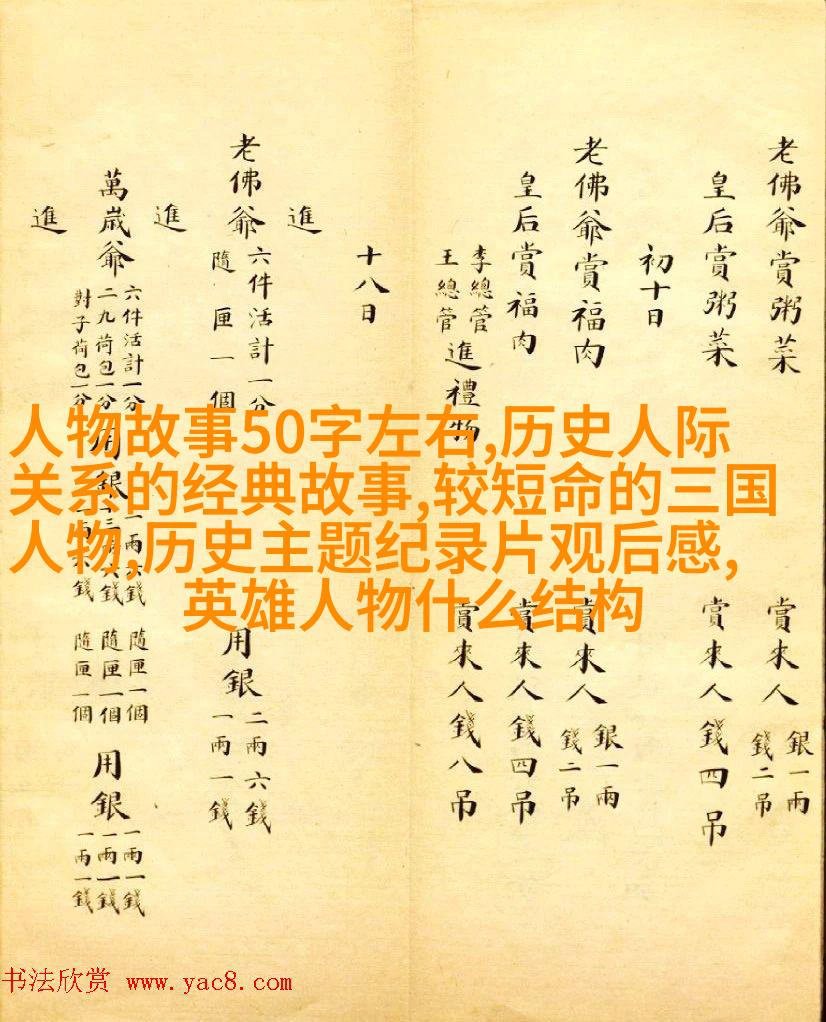 老佛爺賞粥菜 賞來人 銀一兩 錢二吊
皇后賞粥菜 賞來人錢四吊
初十日
老佛爺賞福肉 賞來人 銀一兩 錢二吊
皇后賞福肉 賞來人錢四吊
李總管 王總管 進禮物 賞來人錢八吊
十八日
進
老佛爺 六件活計一分 隨匣一個 用銀 二兩六錢 一兩一錢
進
萬歲爺 六件活計一分 二九荷包一分 對子荷包一分 用銀 隨匣一個 隨匣一個 隨匣一個 用銀 一兩一錢 一兩一錢 一兩一錢
進
人物故事50字左右,历史人际
关系的经典故事,较短命的三国
人物,历史主题纪录片观后感,
英雄人物什么结构
书法欣赏 www.yac8.com